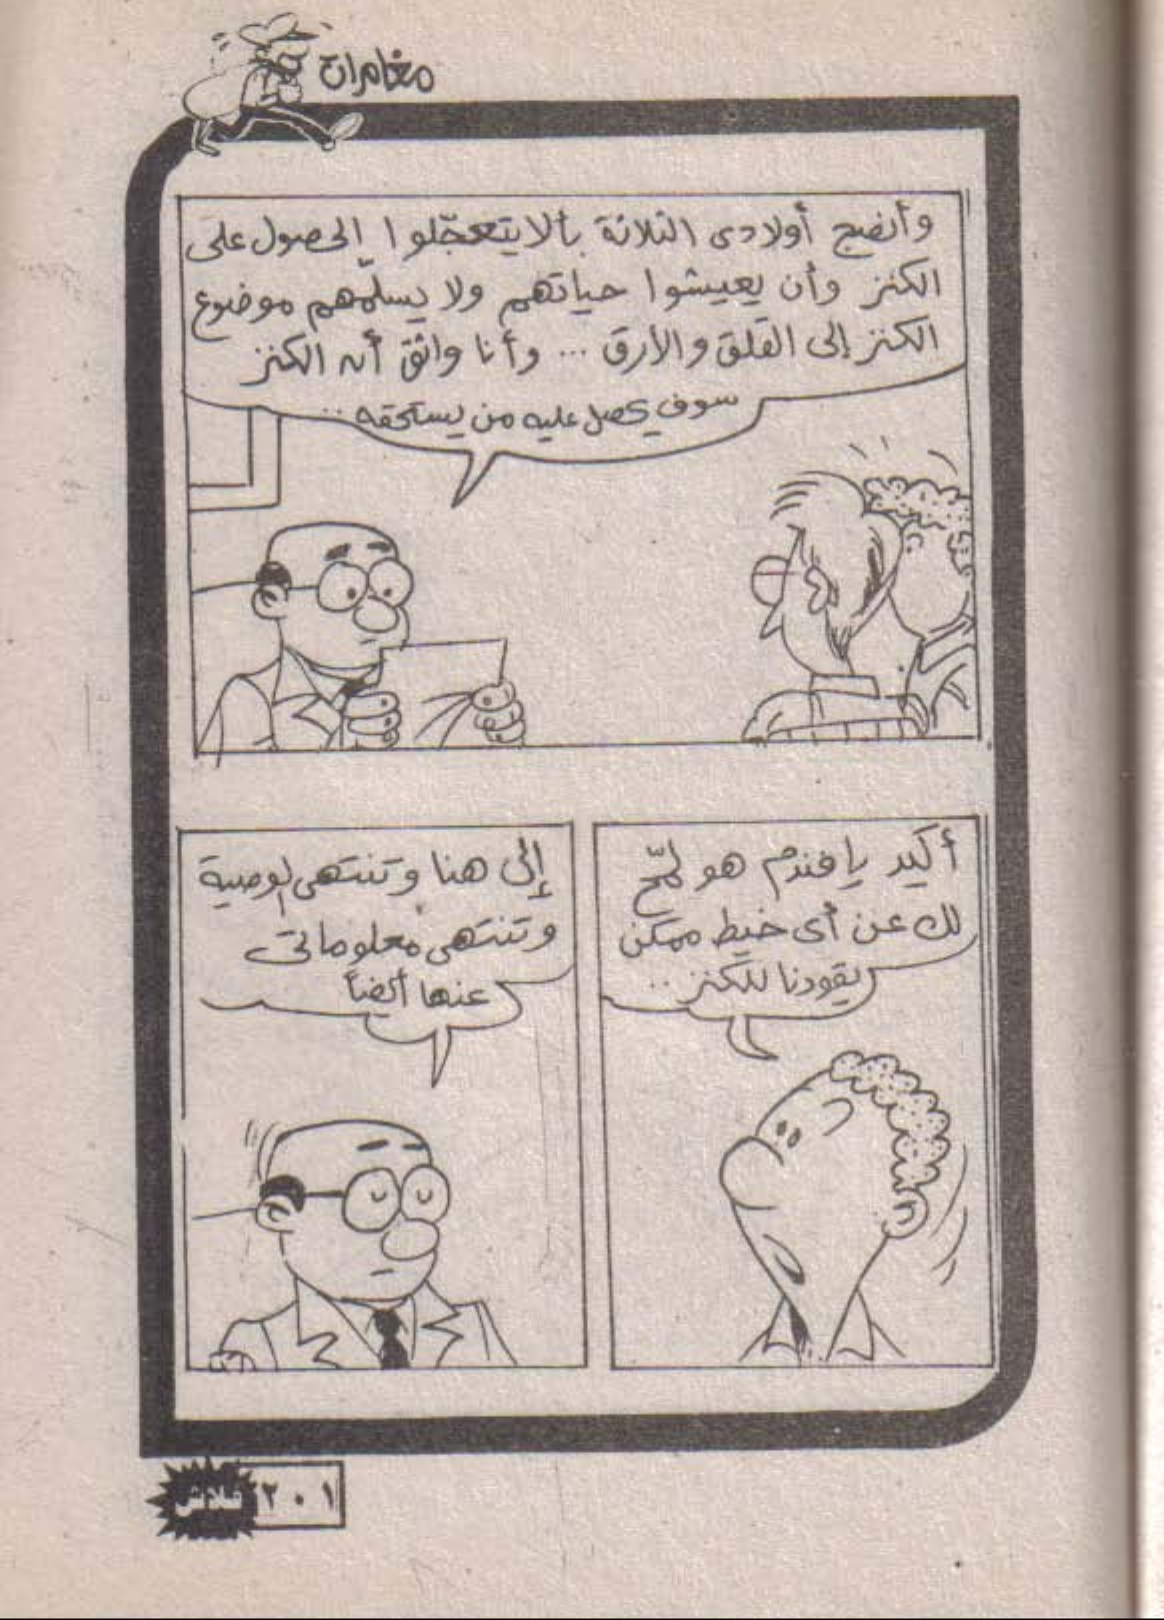 مغامرات
وأنصح أولادى الثلاثة بألا يتعجّلوا الحصول على
الكنز وأن يعيشوا حياتهم ولا يسلّمهم موضوع
الكنز إلى القلق والأرق ... وأنا واثق أن الكنز
سوف يحصل عليه من يستحقه ..
أكيد يا فندم هو لمّح
لك عن أى خيط ممكن
يقودنا للكنز ..
إلى هنا وتنتهى الوصية
وتنتهى معلوماتى
عنها أيضاً
فلاش ٢٠١